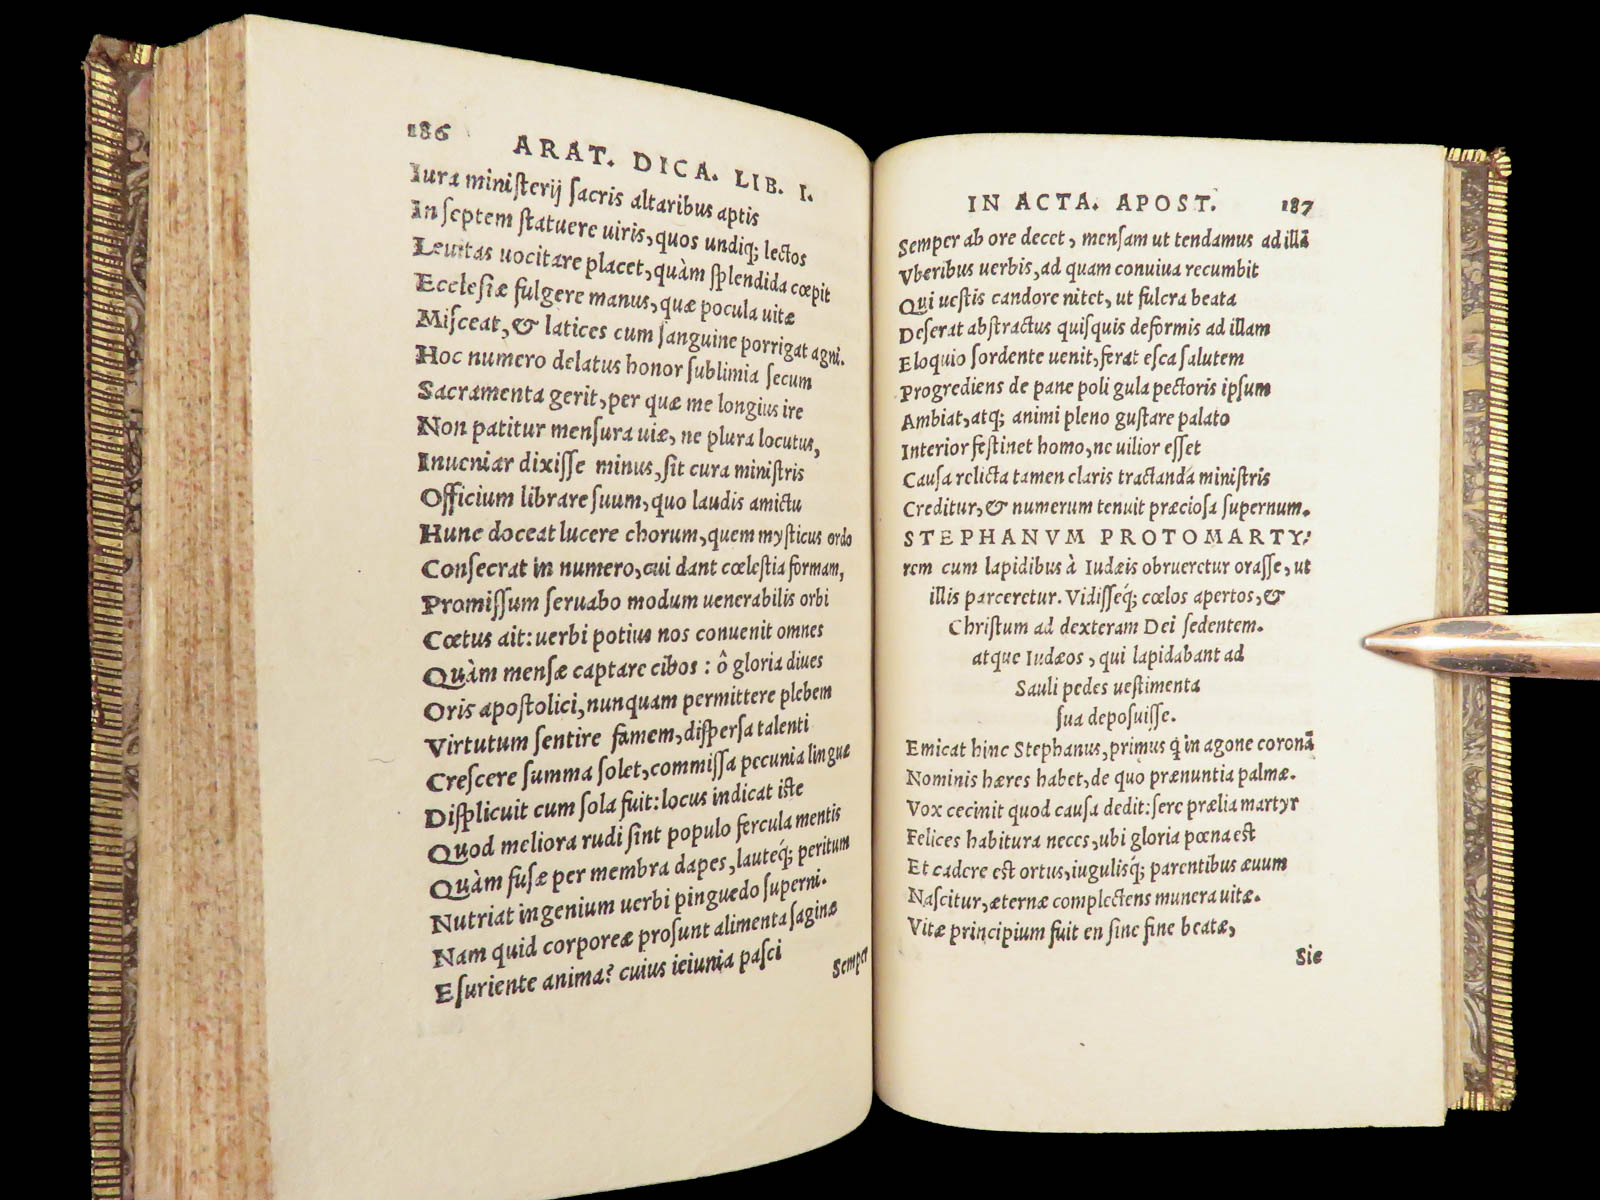 186 ARAT. DICA. LIB. I.
Iura ministerij sacris altaribus aptis
In septem statuere uiris, quos undiq; lectos
Leuitas uocitare placet, quàm splendida cœpit
Ecclesiæ fulgere manus, quæ pocula uitæ
Misceat, & latices cum sanguine porrigat agni.
Hoc numero delatus honor sublimia secum
Sacramenta gerit, per quæ me longius ire
Non patitur mensura uiæ, ne plura locutus,
Inueniar dixisse minus, sit cura ministris
Officium librare suum, quo laudis amictu
Hunc doceat lucere chorum, quem mysticus ordo
Consecrat in numero, cui dant cœlestia formam,
Promissum seruabo modum uenerabilis orbi
Cœtus ait: uerbi potius nos conuenit omnes
Quàm mensæ captare cibos: ô gloria diues
Oris apostolici, nunquam permittere plebem
Virtutum sentire famem, dispersa talenti
Crescere summa solet, commissa pecunia linguæ
Displicuit cum sola fuit: locus indicat iste
Quod meliora rudi sint populo fercula mentis
Quàm fusæ per membra dapes, lauteq́; peritum
Nutriat ingenium uerbi pinguedo superni.
Nam quid corporeæ prosunt alimenta saginæ
Esuriente anima? cuius ieiunia pasci
Semper
IN ACTA. APOST. 187
Semper ab ore decet, mensam ut tendamus ad illā
Vberibus uerbis, ad quam conuiua recumbit
Qui uestis candore nitet, ut fulcra beata
Deserat abstractus quisquis deformis ad illam
Eloquio sordente uenit, ferat esca salutem
Progrediens de pane poli gula pectoris ipsum
Ambiat, atq; animi pleno gustare palato
Interior festinet homo, ne uilior esset
Causa relicta tamen claris tractanda ministris
Creditur, & numerum tenuit præciosa supernum.
STEPHANVM PROTOMARTY-
rem cum lapidibus à Iudæis obrueretur orasse, ut
illis parceretur. Vidisseq́; cœlos apertos, &
Christum ad dexteram Dei sedentem.
atque Iudæos, qui lapidabant ad
Sauli pedes uestimenta
sua deposuisse.
Emicat hinc Stephanus, primus q̃ in agone coronā
Nominis hæres habet, de quo prænuntia palmæ.
Vox cecinit quod causa dedit: fere prælia martyr
Felices habitura neces, ubi gloria pœna est
Et cadere est ortus, iugulisq́; parentibus æuum
Nascitur, æternæ complectens munera uitæ.
Vitæ principium fuit en sine fine beatæ,
Sic